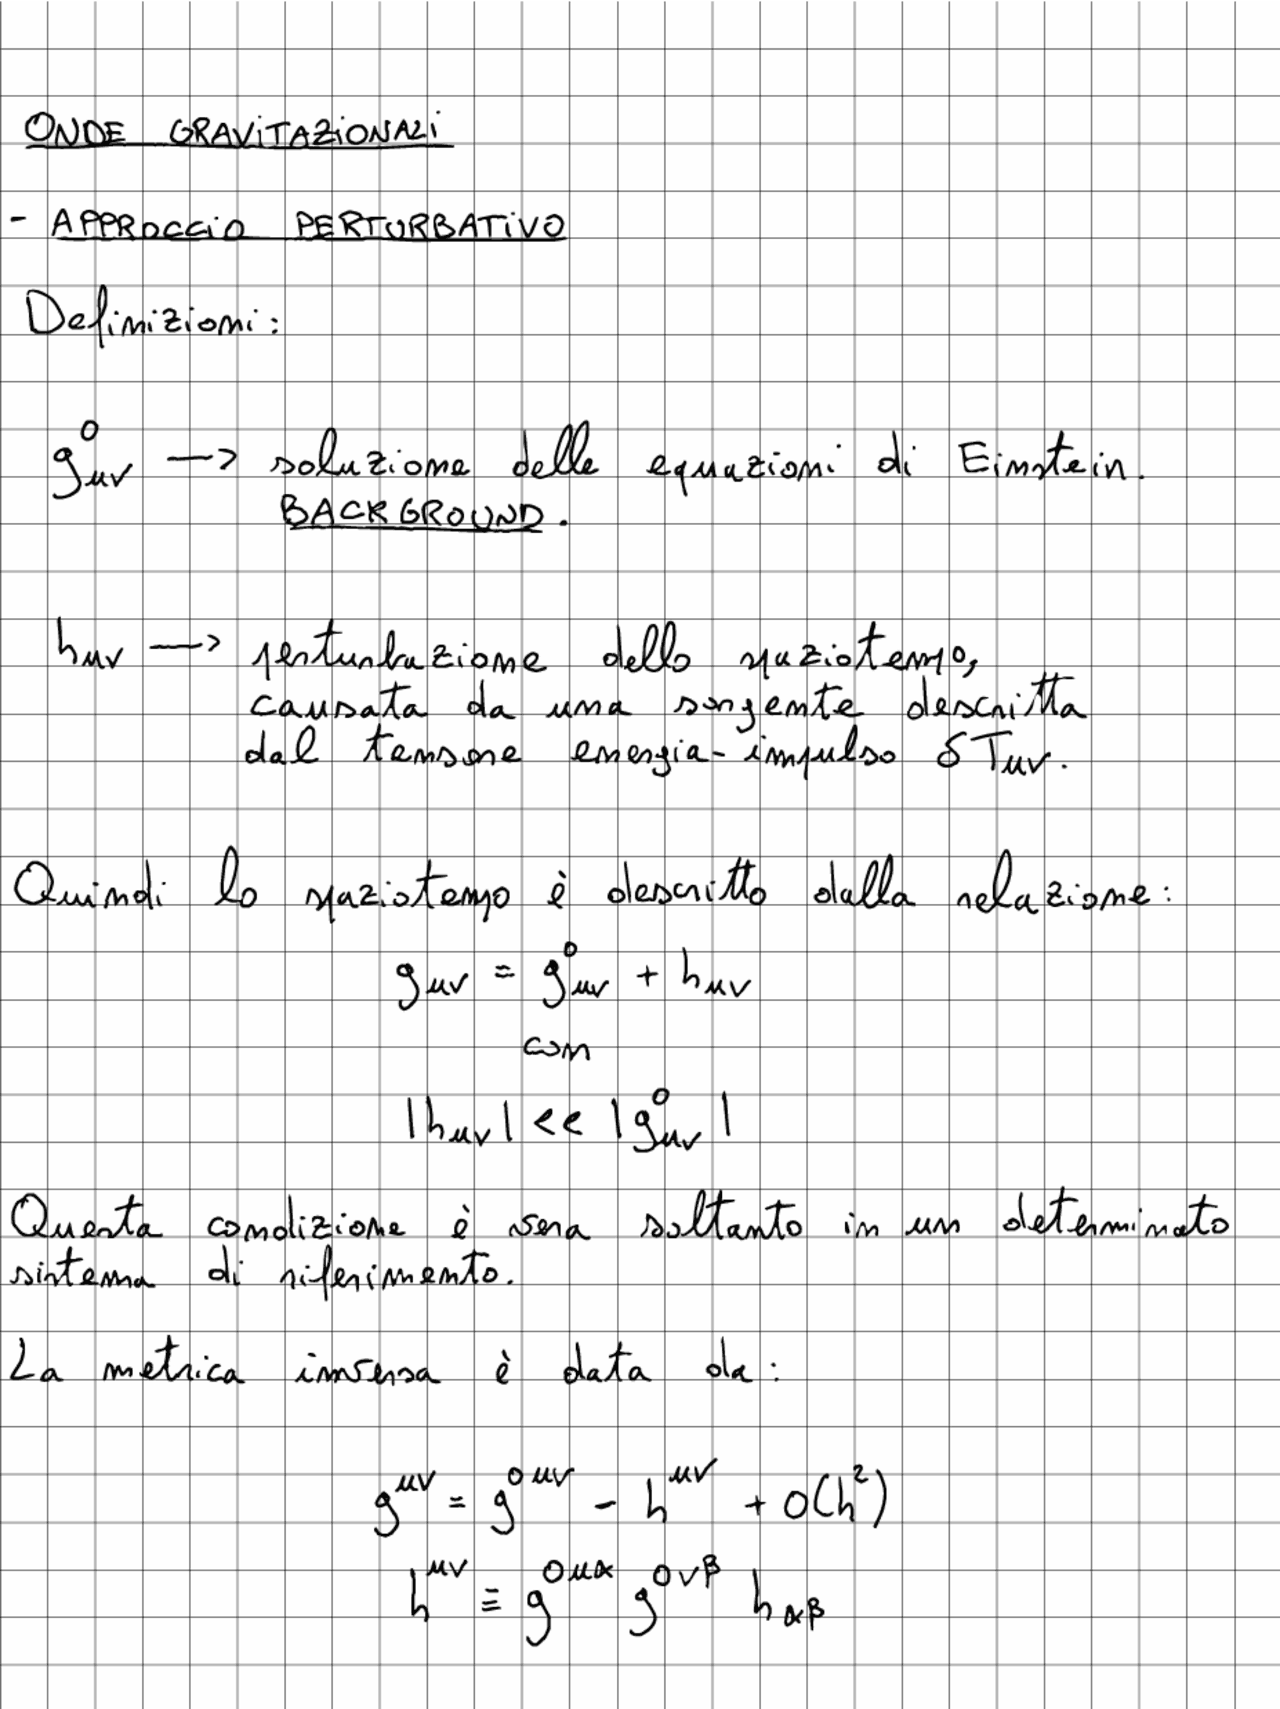 ONDE GRAVITAZIONALI
- APPROCCIO PERTURBATIVO
Definizioni:
g⁰μν —> soluzione delle equazioni di Einstein.
BACKGROUND.
hμν —> perturbazione dello spaziotempo,
causata da una sorgente descritta
dal tensore energia-impulso δTμν.
Quindi lo spaziotempo è descritto dalla relazione:
gμν = g⁰μν + hμν
con
|hμν| << |g⁰μν|
Questa condizione è vera soltanto in un determinato
sistema di riferimento.
La metrica inversa è data da:
g^μν = g^0μν - h^μν + O(h²)
h^μν ≡ g^0μα g^0νβ h_αβ